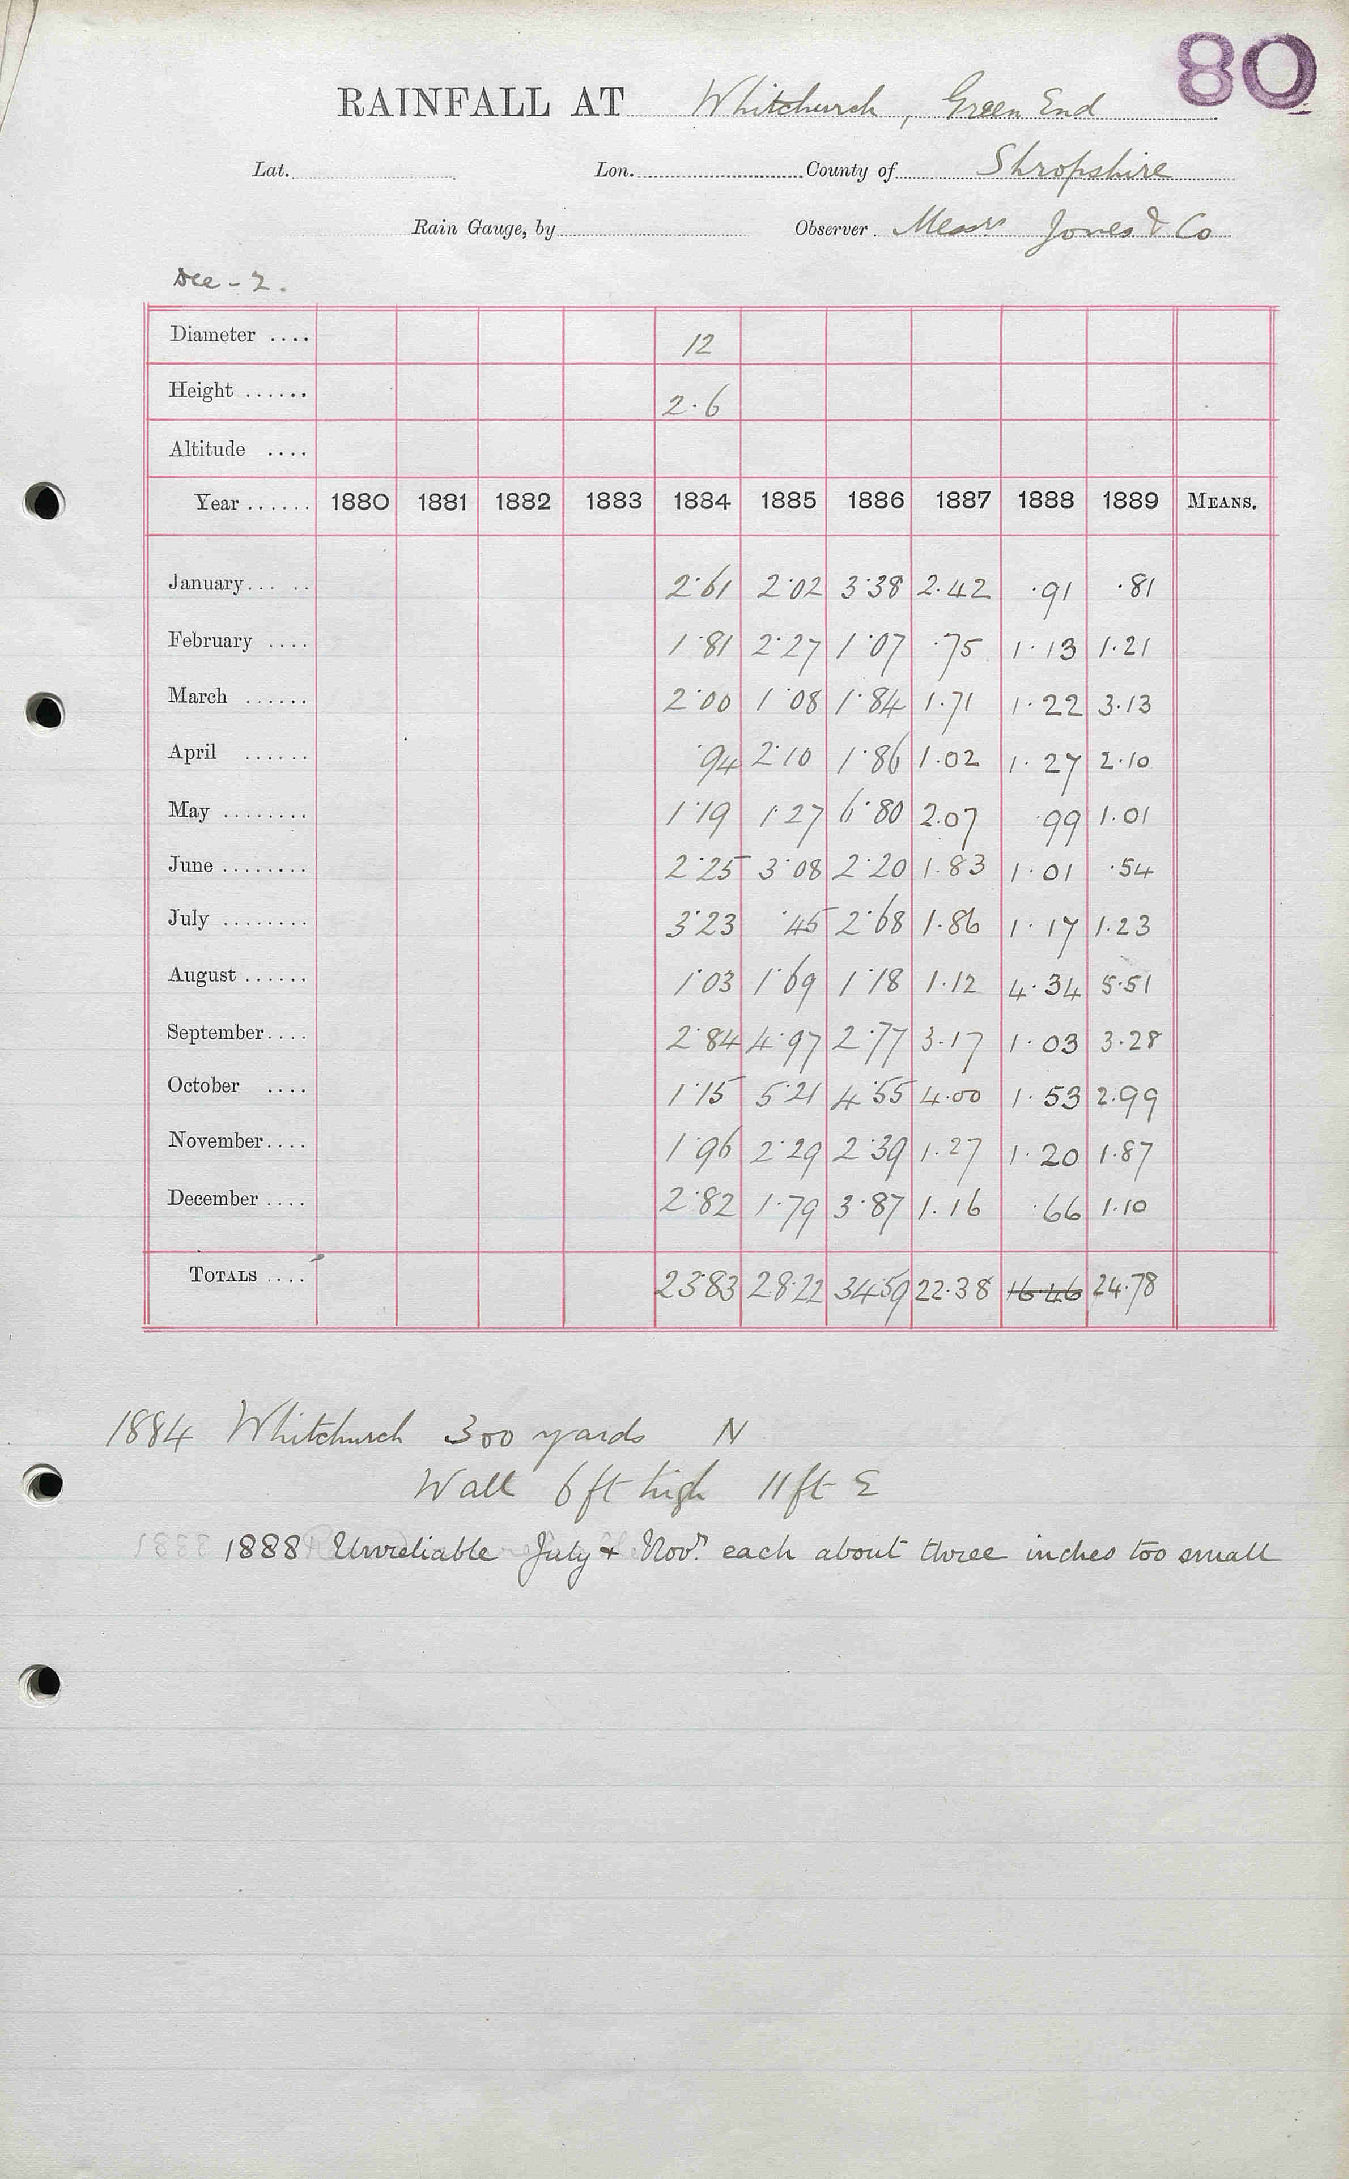 80
RAINFALL AT Whitchurch, Green End
Lat. Lon. County of Shropshire
Rain Gauge, by Observer. Messrs Jones & Co
Dee - 2.
Diameter .... 12
Height ...... 2.6
Altitude ....
Year ...... 1880 1881 1882 1883 1884 1885 1886 1887 1888 1889 MEANS.
January... .. 2.61 2.02 3.38 2.42 .91 .81
February .... 1.81 2.27 1.07 .75 1.13 1.21
March ...... 2.00 1.08 1.84 1.71 1.22 3.13
April ...... .94 2.10 1.86 1.02 1.27 2.10
May ........ 1.19 1.27 6.80 2.07 .99 1.01
June ........ 2.25 3.08 2.20 1.83 1.01 .54
July ........ 3.23 .45 2.68 1.86 1.17 1.23
August ...... 1.03 1.69 1.18 1.12 4.34 5.51
September.... 2.84 4.97 2.77 3.17 1.03 3.28
October .... 1.15 5.21 4.55 4.00 1.53 2.99
November.... 1.96 2.29 2.39 1.27 1.20 1.87
December .... 2.82 1.79 3.87 1.16 .66 1.10
TOTALS .... 23.83 28.22 34.59 22.38 16.46 24.78
1884 Whitchurch 300 yards N
Wall 6 ft high 11 ft E
1888 Unreliable July & Novr. each about three inches too small